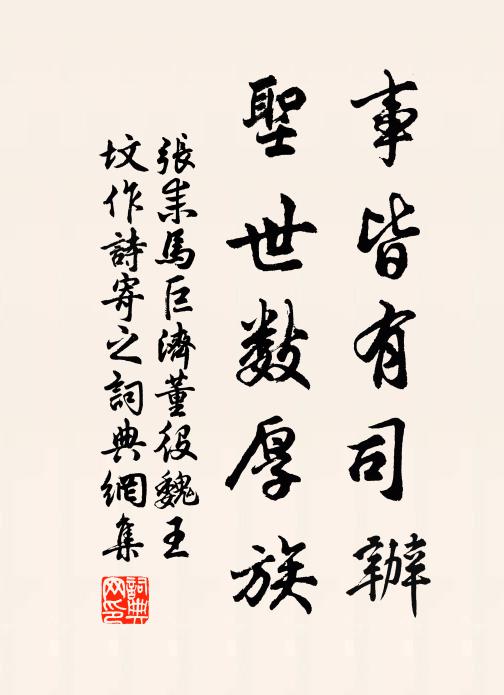 事皆有司辦
聖世数厚族
張耒馬巨濟董役魏王
坟作詩寄之詞典網集
詞典網印